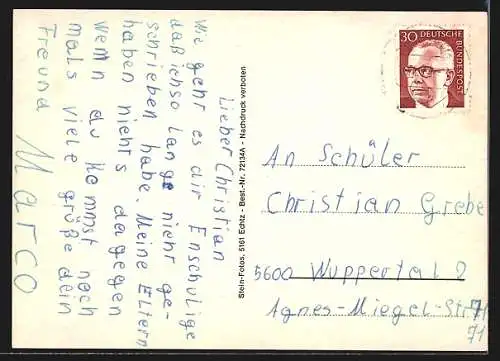 Lieber Christian
Wie gehr es dir Enschulige
daßichso lange nicht ge-
schrieben habe. Meine Eltern
haben nichts dagegen
wenn du kommst noch
mals viele grüße dein
Freund
Marco
Stein-Fotos, 5161 Echtz - Best.-Nr. 72134A - Nachdruck verboten
30 DEUTSCHE
BUNDESPOST
An Schüler
Christian Grebe
5600 Wuppertal 2
Agnes-Miegel-Str. 71
71